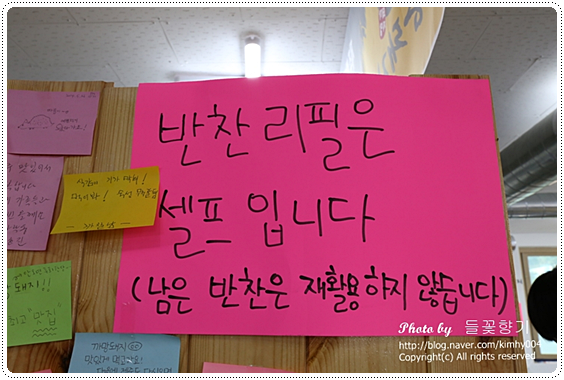 반찬 리필은
셀프 입니다
(남은 반찬은 재활용 하지 않습니다)
돼지!!
맛집
개망돼지
맛있게 먹고가요!
Photo by 들꽃향기
http://blog.naver.com/kimhy004
Copyright(c) All rights reserved